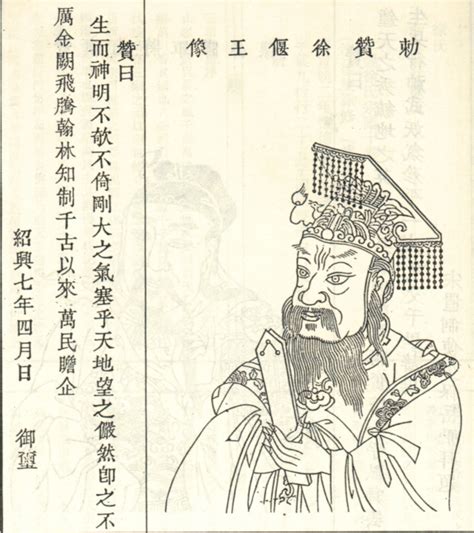 勅贊徐偃王像
贊曰
生而神明不欹不倚剛大之氣塞乎天地望之儼然即之不
厲金闕飛騰翰林知制千古以來萬民瞻企
紹興七年四月日 御璽